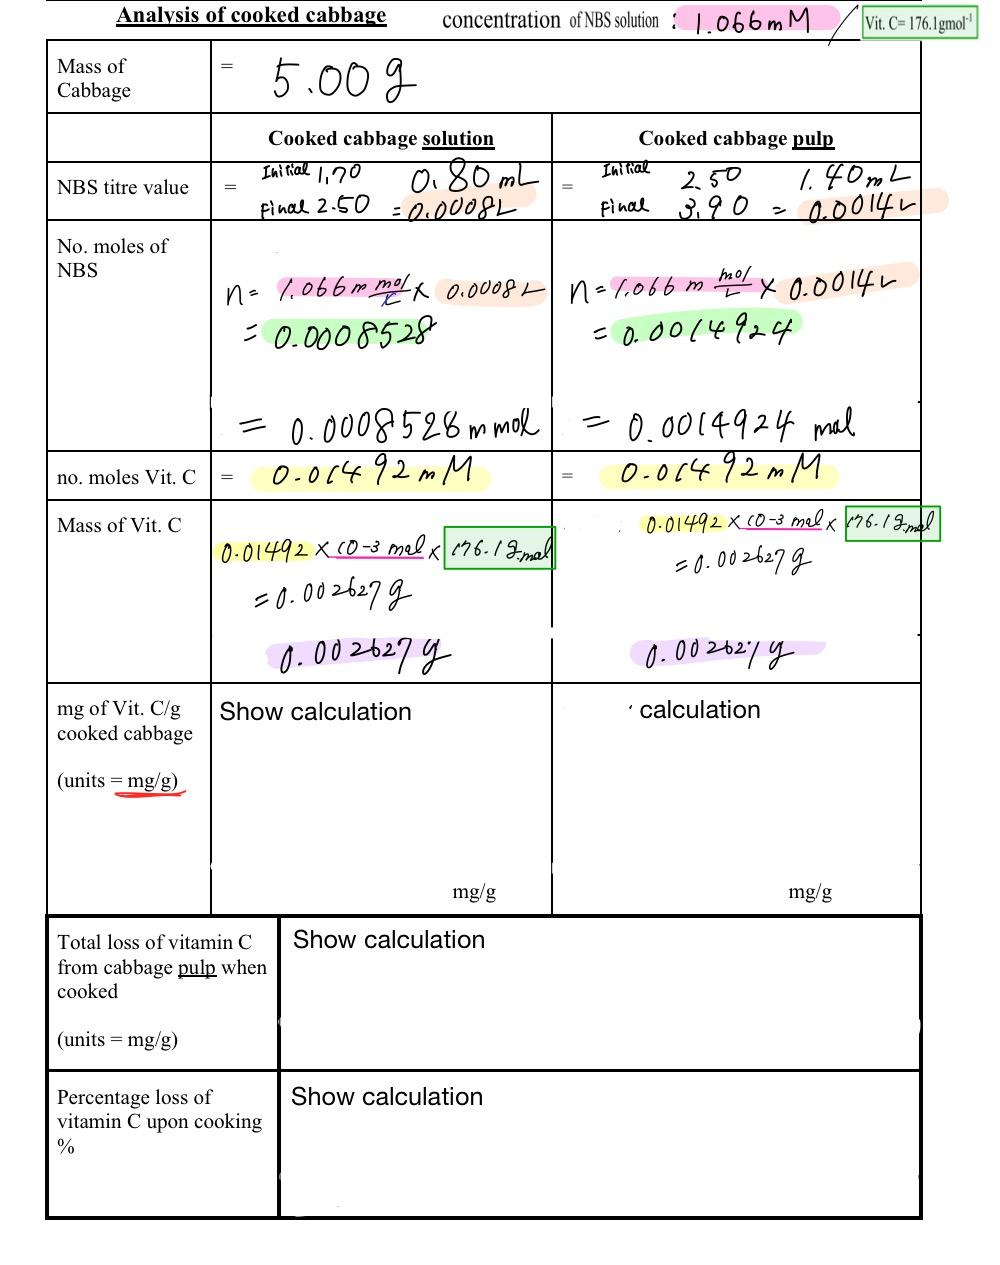 Analysis of cooked cabbage concentration of NBS solution : 1.066mM / Vit. C= 176.1gmol⁻¹
Mass of Cabbage = 5.00 g
Cooked cabbage solution Cooked cabbage pulp
NBS titre value = Initial 1,70 0.80 mL = Initial 2.50 1.40mL
Final 2.50 = 0.0008L Final 3.90 = 0.0014L
No. moles of
NBS
n= 1.066 m mol/L x 0.0008 L n= 1.066 m mol/L x 0.0014L
= 0.0008528 = 0.0014924
= 0.0008528 m mol = 0.0014924 mol
no. moles Vit. C = 0.01492mM = 0.01492mM
Mass of Vit. C
0.01492 x 10-3 mol x 176.1g.mol 0.01492 x 10-3 mol x 176.1g.mol
=0.002627g =0.002627g
0.002627g 0.002627g
mg of Vit. C/g Show calculation calculation
cooked cabbage
(units = mg/g)
mg/g mg/g
Total loss of vitamin C Show calculation
from cabbage pulp when
cooked
(units = mg/g)
Percentage loss of Show calculation
vitamin C upon cooking
%